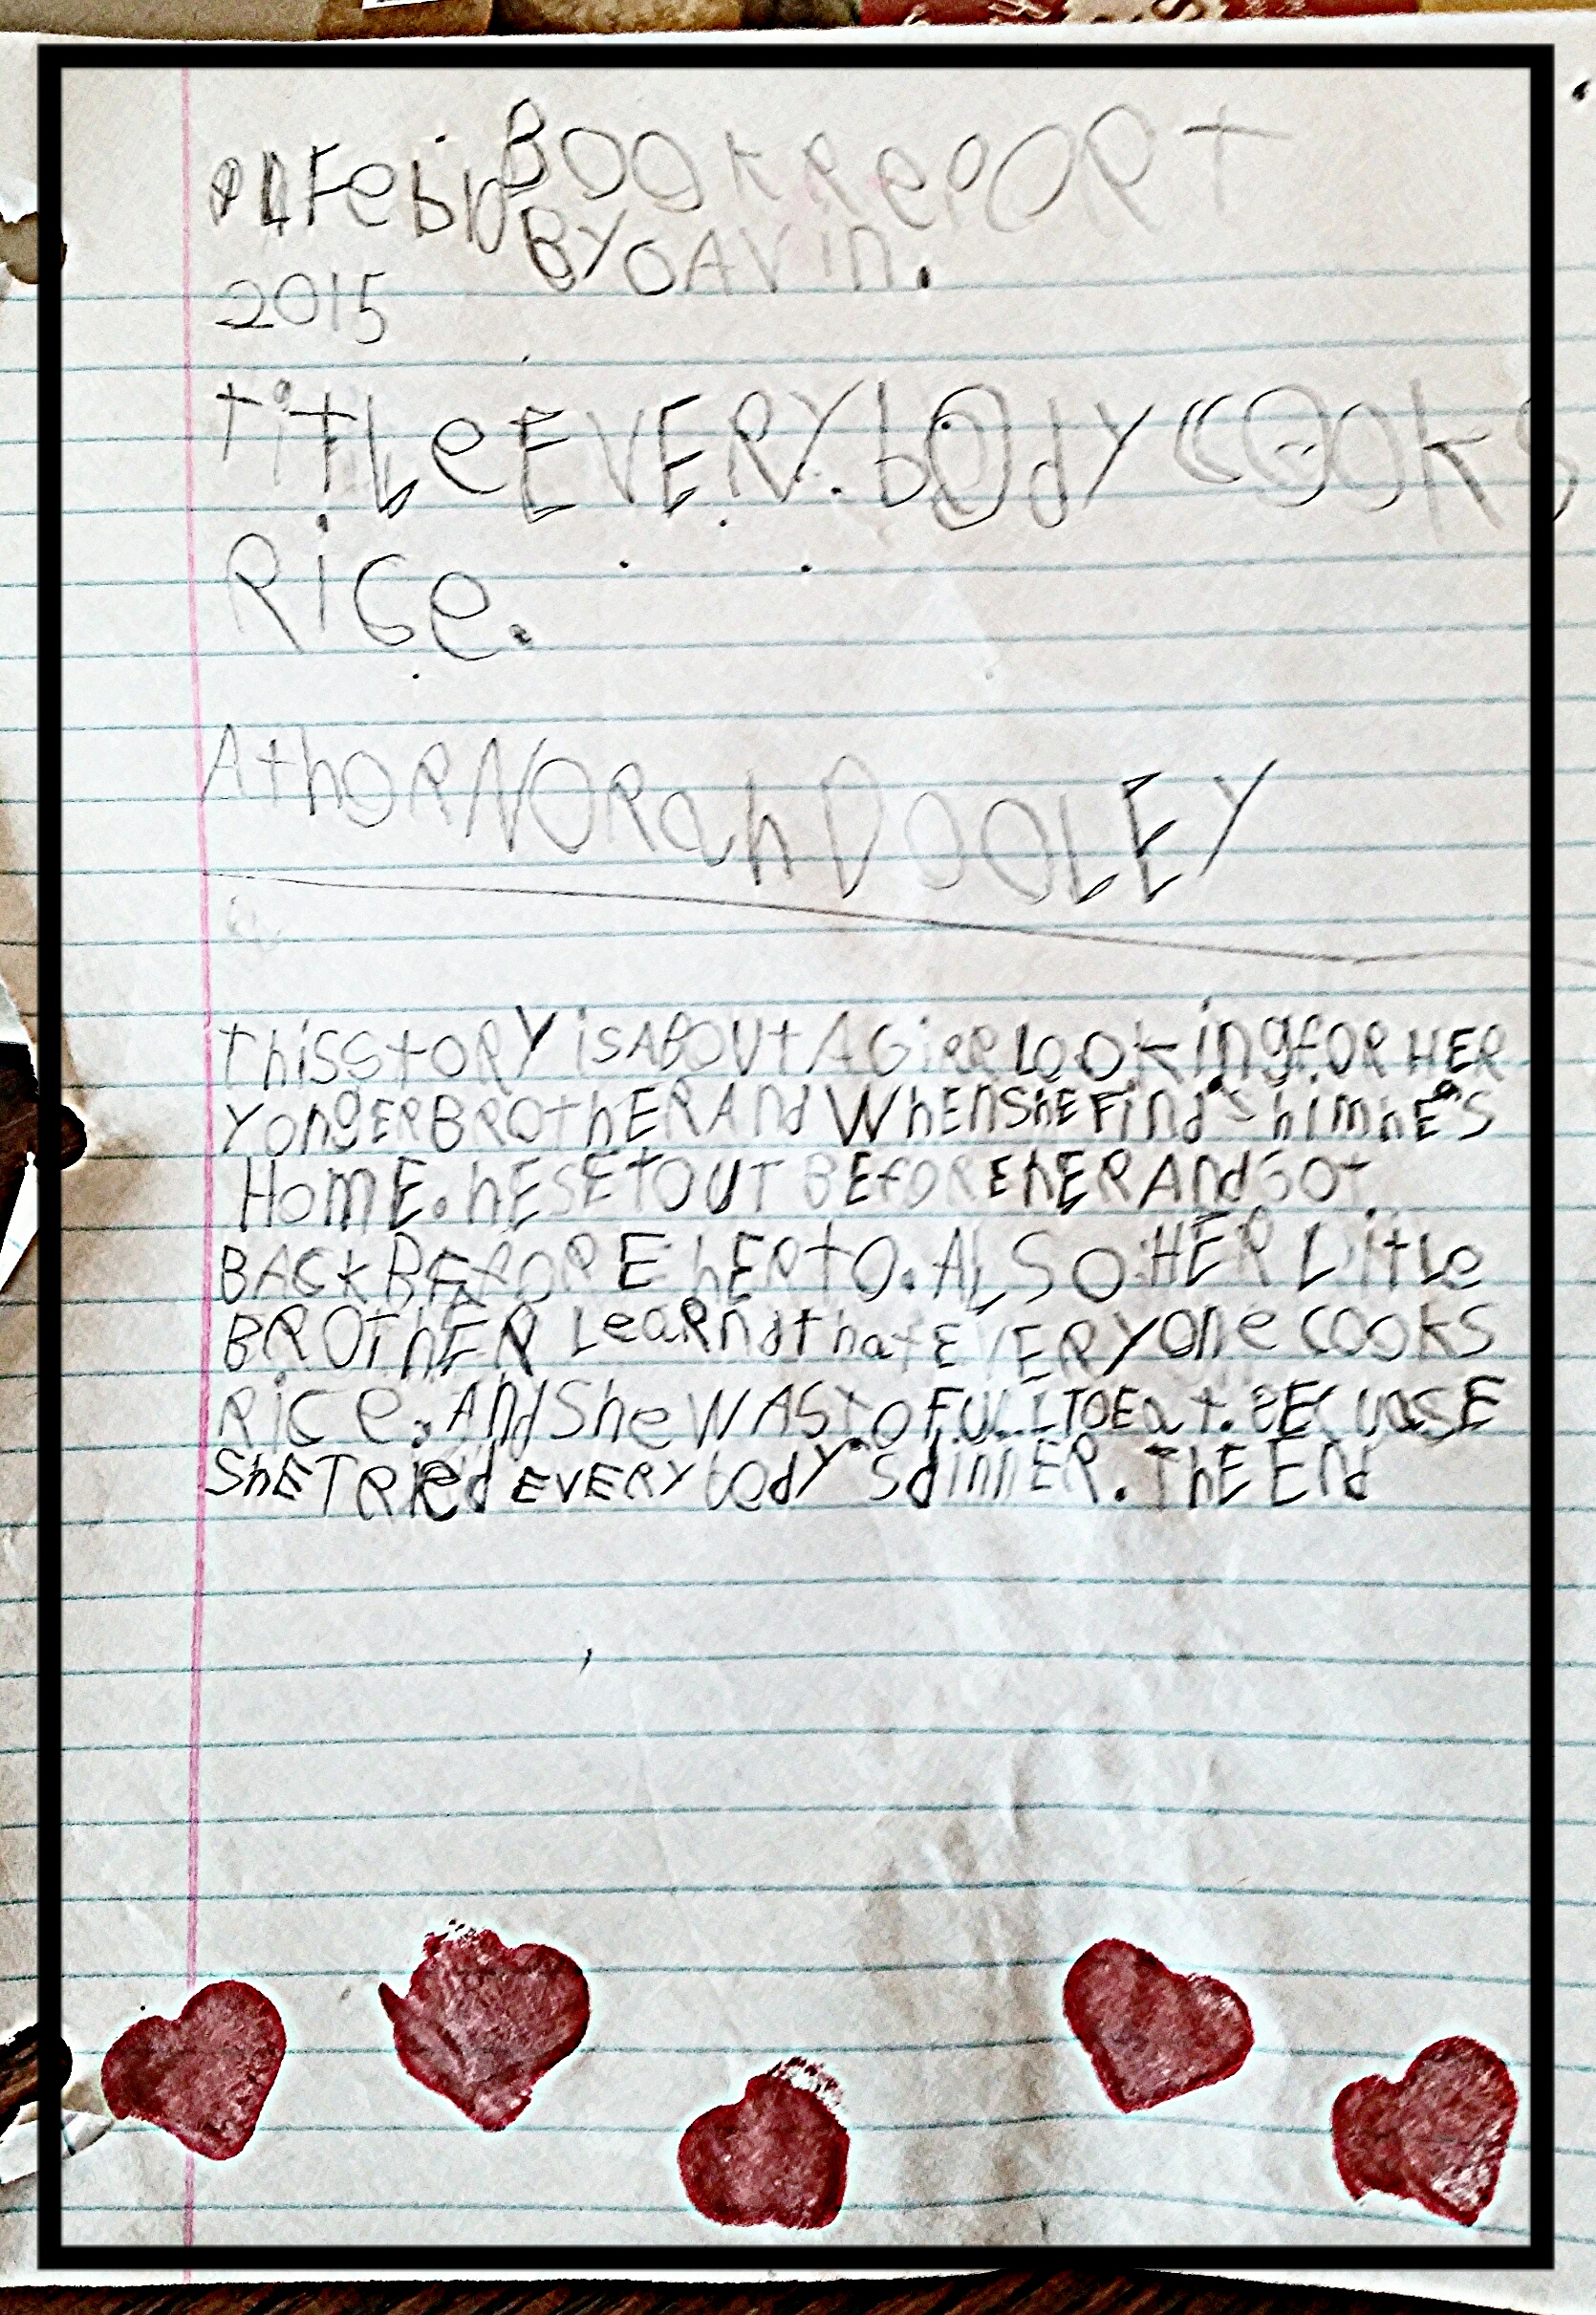 Book RePORt
Feb
BY GAVin.
2015
titLe EVERY.bOdY COOKS
Rice.
AthOR NORah DOOLEY
thiS StoRY iS ABOUt A GiRR LOOKing fOR HER
YongER BROthER And WhEn ShE Find's him hE'S
HomE. hE SET OUT BEfORE hER And Got
BACk BEfoRE hER tO. ALSO HER Little
BROThER LeaRndt that EVERYone COOKS
RiCe. And She WAS to FULL TO Eat. BECUASE
ShE TRied EVERYbody's dinnER. ThE End